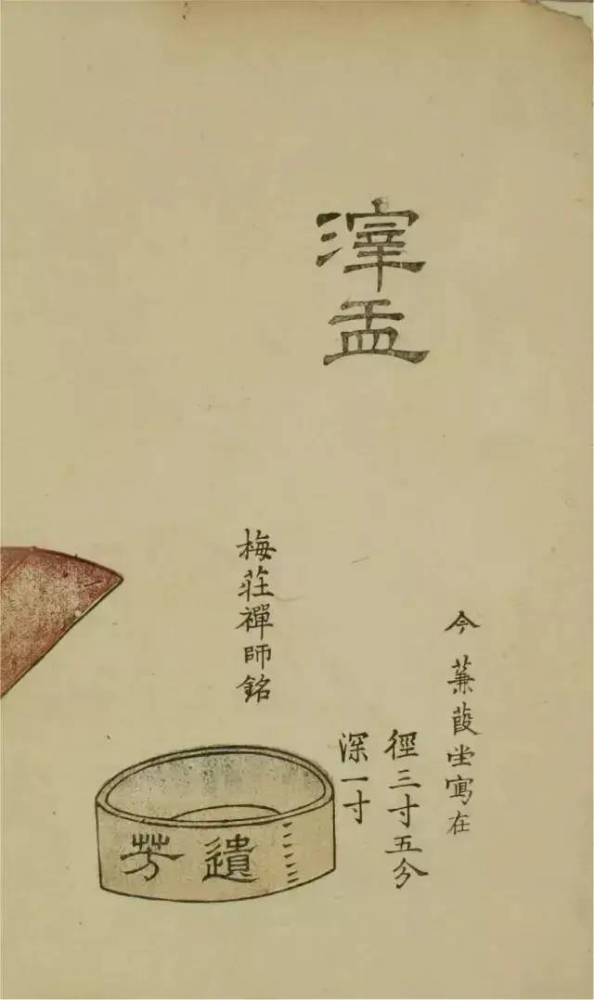 滓盂
今蒹葭堂寫在
徑三寸五分
深一寸
梅莊禪師銘
遺芳